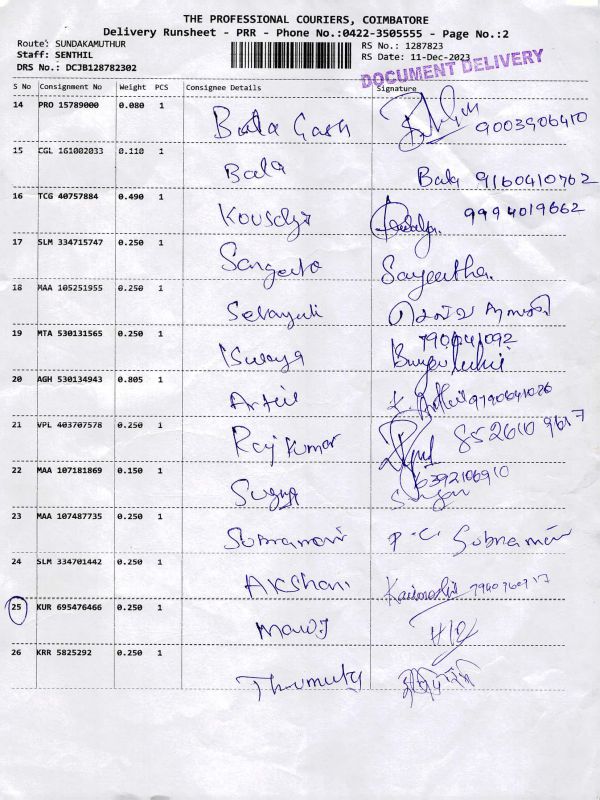 THE PROFESSIONAL COURIERS, COIMBATORE
Delivery Runsheet - PRR - Phone No.:0422-3505555 - Page No.:2
Route: SUNDAKAMUTHUR RS No.: 1287823
Staff: SENTHIL RS Date: 11-Dec-2023
DRS No.: DCJB128782302
DOCUMENT DELIVERY
S No Consignment No Weight PCS Consignee Details Signature
14 PRO 15789000 0.080 1 Bala Gash 9003906410
15 CGL 161002033 0.110 1 Bala Bala 9160410762
16 TCG 40757884 0.490 1 9994019662
17 SLM 334715747 0.250 1 Sangeeta Sangeetha
18 MAA 105251955 0.250 1
19 MTA 530131565 0.250 1
20 AGH 530134943 0.805 1 9790641026
21 VPL 403707578 0.250 1 Raj Kumar 8526109617
22 MAA 107181869 0.150 1 6392106910
23 MAA 107487735 0.250 1 P.C.
24 SLM 334701442 0.250 1 Akshan
25 KUR 695476466 0.250 1 Manoj
26 KRR 5825292 0.250 1